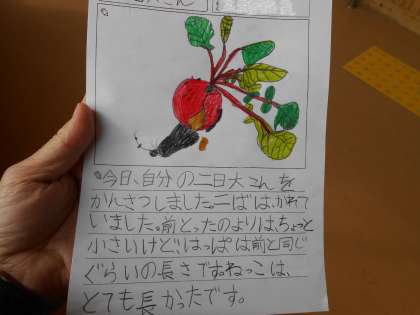 大こん
今日、自分の二日大こんを
かんさつしました。二ばは、かれて
いました。前とったのよりは、ちょっと
小さいけど、はっぱは前と同じ
ぐらいの長さです。ねっこは、
とても長かったです。